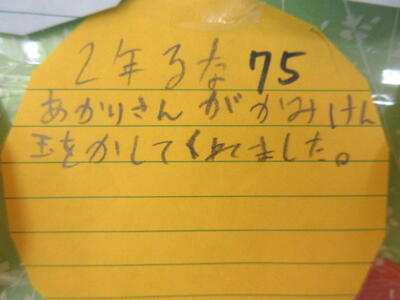 2年るな 75
あかりさんがかみけん
玉をかしてくれました。